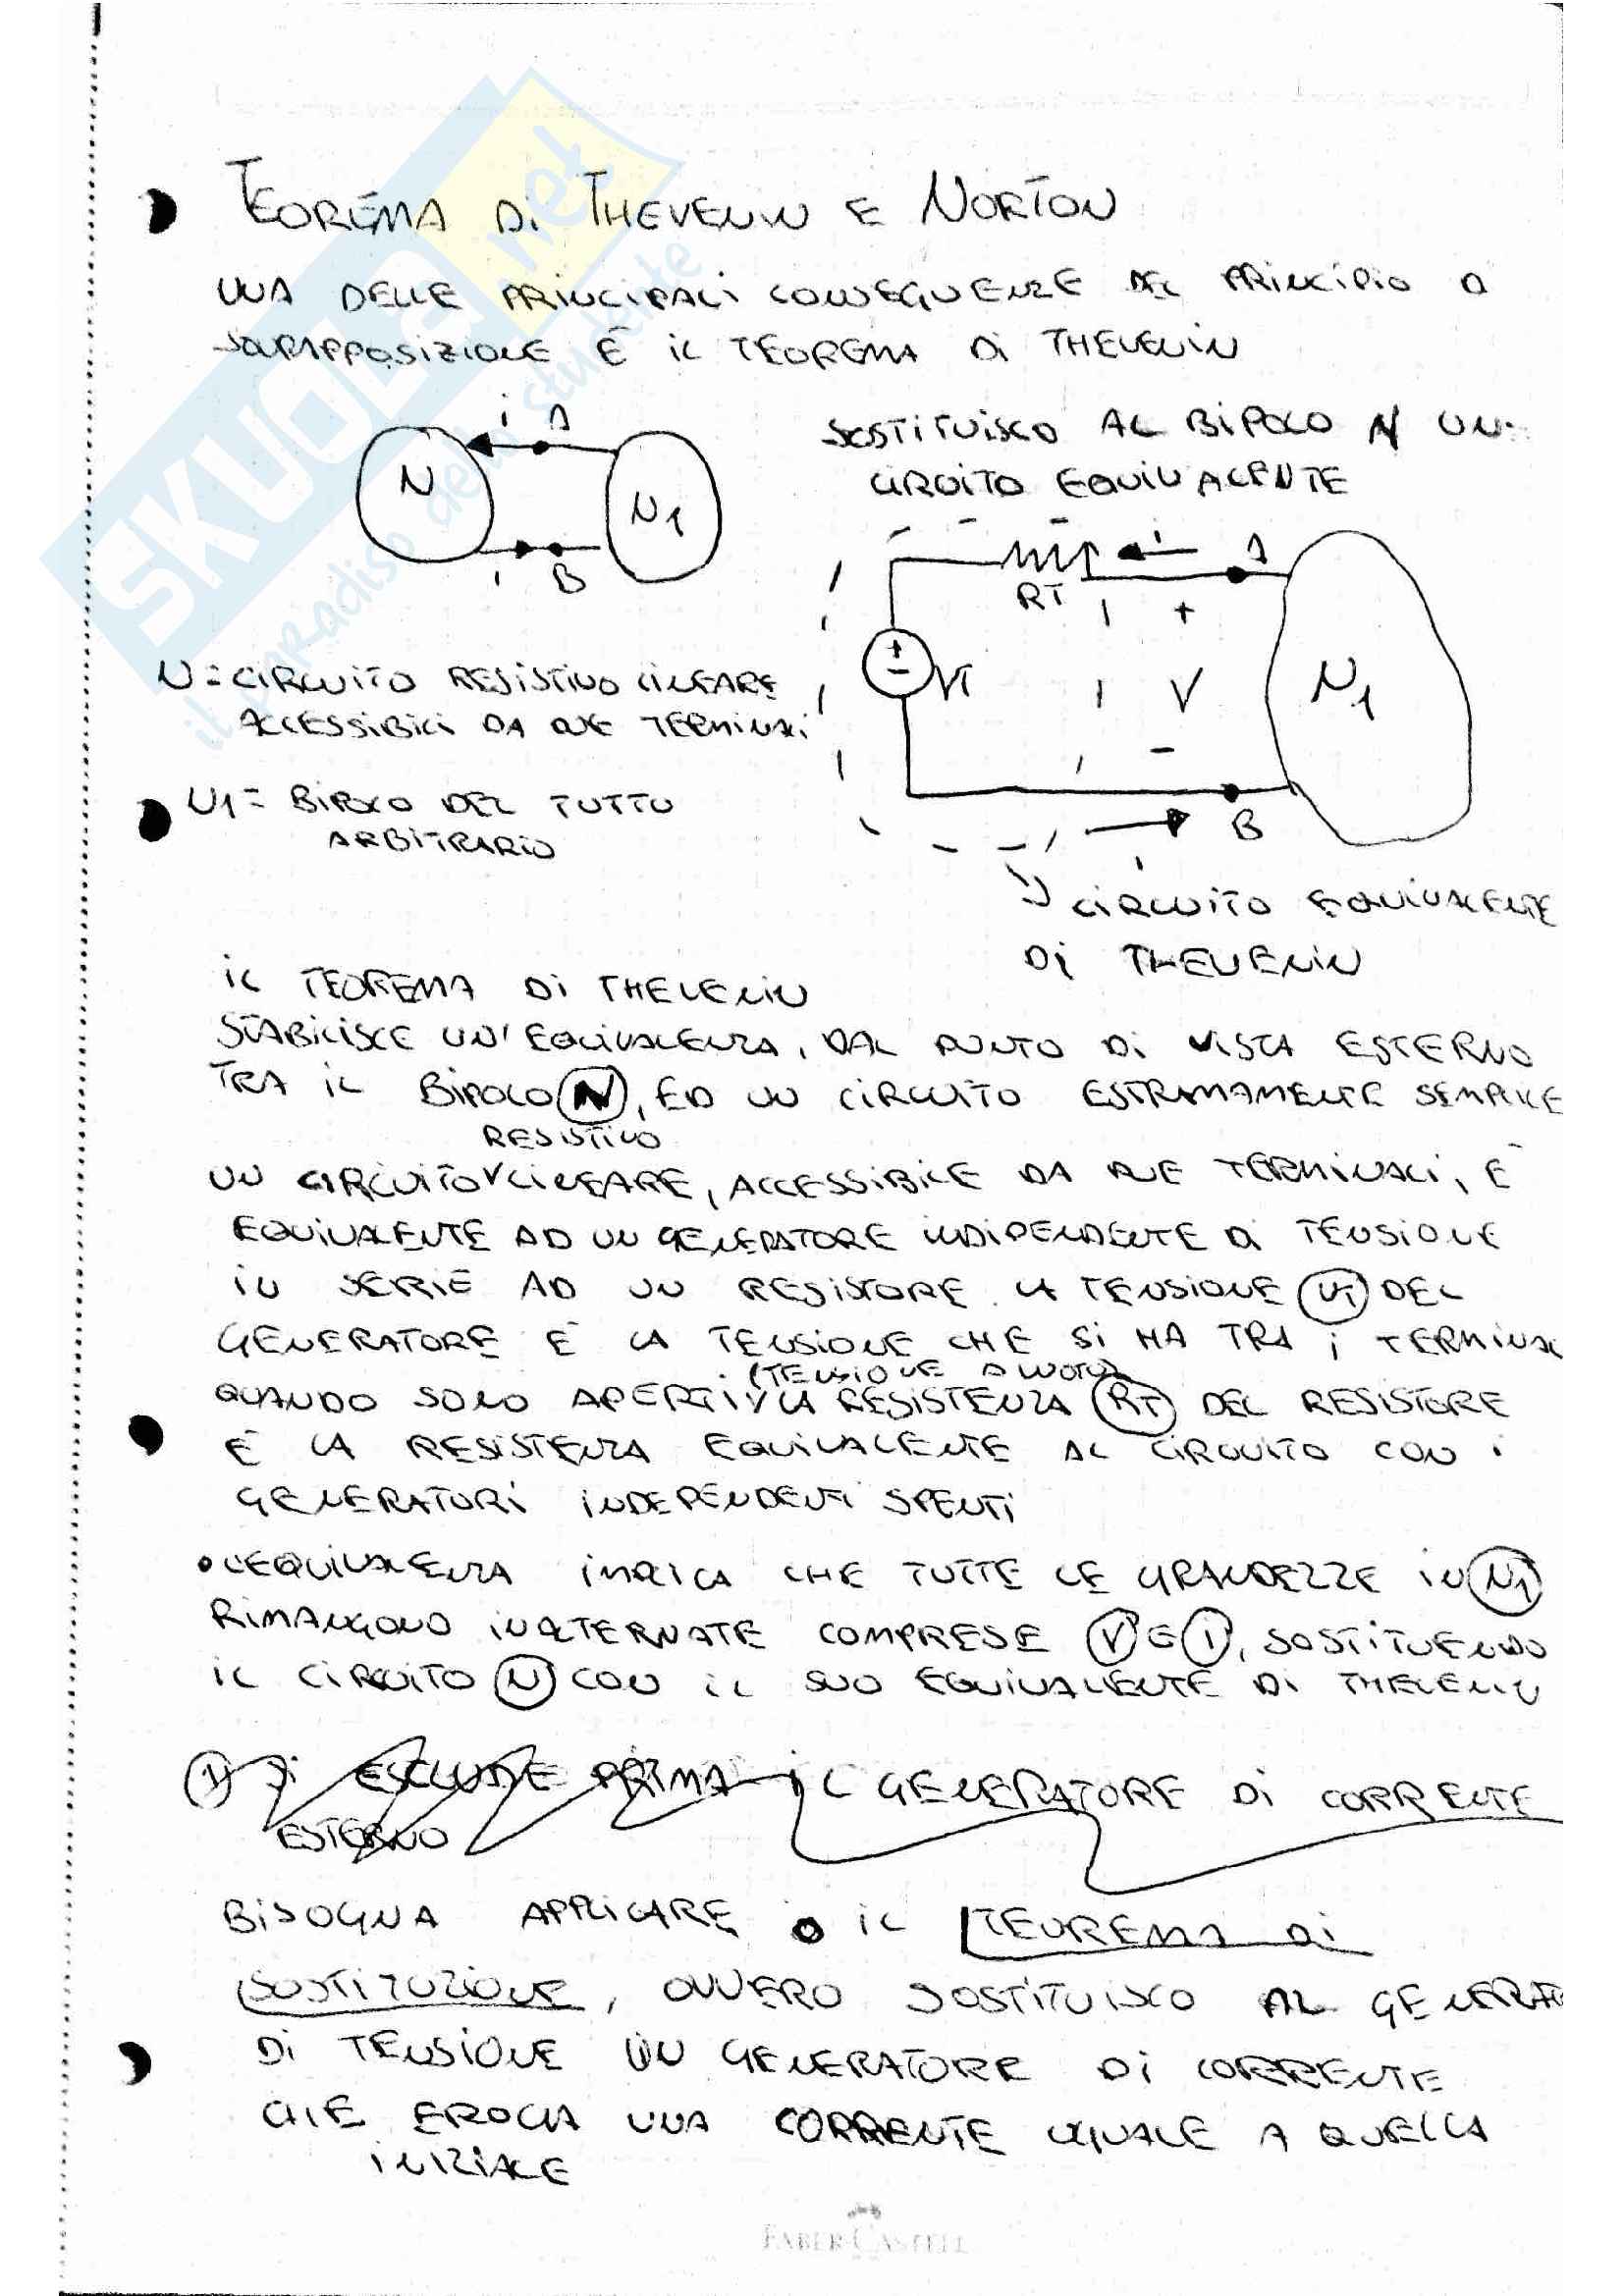 TEOREMA Di THEVENIN E NORTON
UNA DELLE PRINCIPALI CONSEGUENZE DEL PRINCIPIO D
SOVRAPPOSIZIONE È IL TEOREMA Di THEVENIN
i A
N
N1
i B
SOSTITUISCO AL BIPOLO N UN
CIRCUITO EQUIVALENTE
RT
i
A
+
VT
V
-
N1
B
i
N = CIRCUITO RESISTIVO LINEARE
ACCESSIBILI DA DUE TERMINALI
N1 = BIPOLO DEL TUTTO
ARBITRARIO
CIRCUITO EQUIVALENTE
Di THEVENIN
IL TEOREMA Di THEVENIN
STABILISCE UN'EQUIVALENZA, DAL PUNTO Di VISTA ESTERNO
TRA IL BIPOLO N, ED UN CIRCUITO ESTRAMAMENTE SEMPLICE
RESISTIVO
UN CIRCUITO LINEARE, ACCESSIBILE DA DUE TERMINALI, È
EQUIVALENTE AD UN GENERATORE INDIPENDENTE Di TENSIONE
IN SERIE AD UN RESISTORE. LA TENSIONE VT DEL
GENERATORE È LA TENSIONE CHE SI HA TRA i TERMINAL
(TENSIONE A VUOTO)
QUANDO SONO APERTI LA RESISTENZA RT DEL RESISTORE
È LA RESISTENZA EQUIVALENTE AL CIRCUITO CON i
GENERATORI INDEPENDENTI SPENTI
• L'EQUIVALENZA IMPLICA CHE TUTTE LE GRANDEZZE IN N1
RIMANGONO INALTERNATE COMPRESE V E I, SOSTITUENDO
IL CIRCUITO N CON IL SUO EQUIVALENTE Di THEVENIN
1) Si ESCLUDE PRIMA IL GENERATORE Di CORRENTE
ESTERNO
BISOGNA APPLICARE IL TEOREMA Di
SOSTITUZIONE, OVVERO SOSTITUISCO AL GENERATO
Di TENSIONE UN GENERATORE Di CORRENTE
CHE EROGA UNA CORRENTE UGUALE A QUELLA
INIZIALE
FABER-CASTELL
SKUOLA.net
il paradiso dello studente